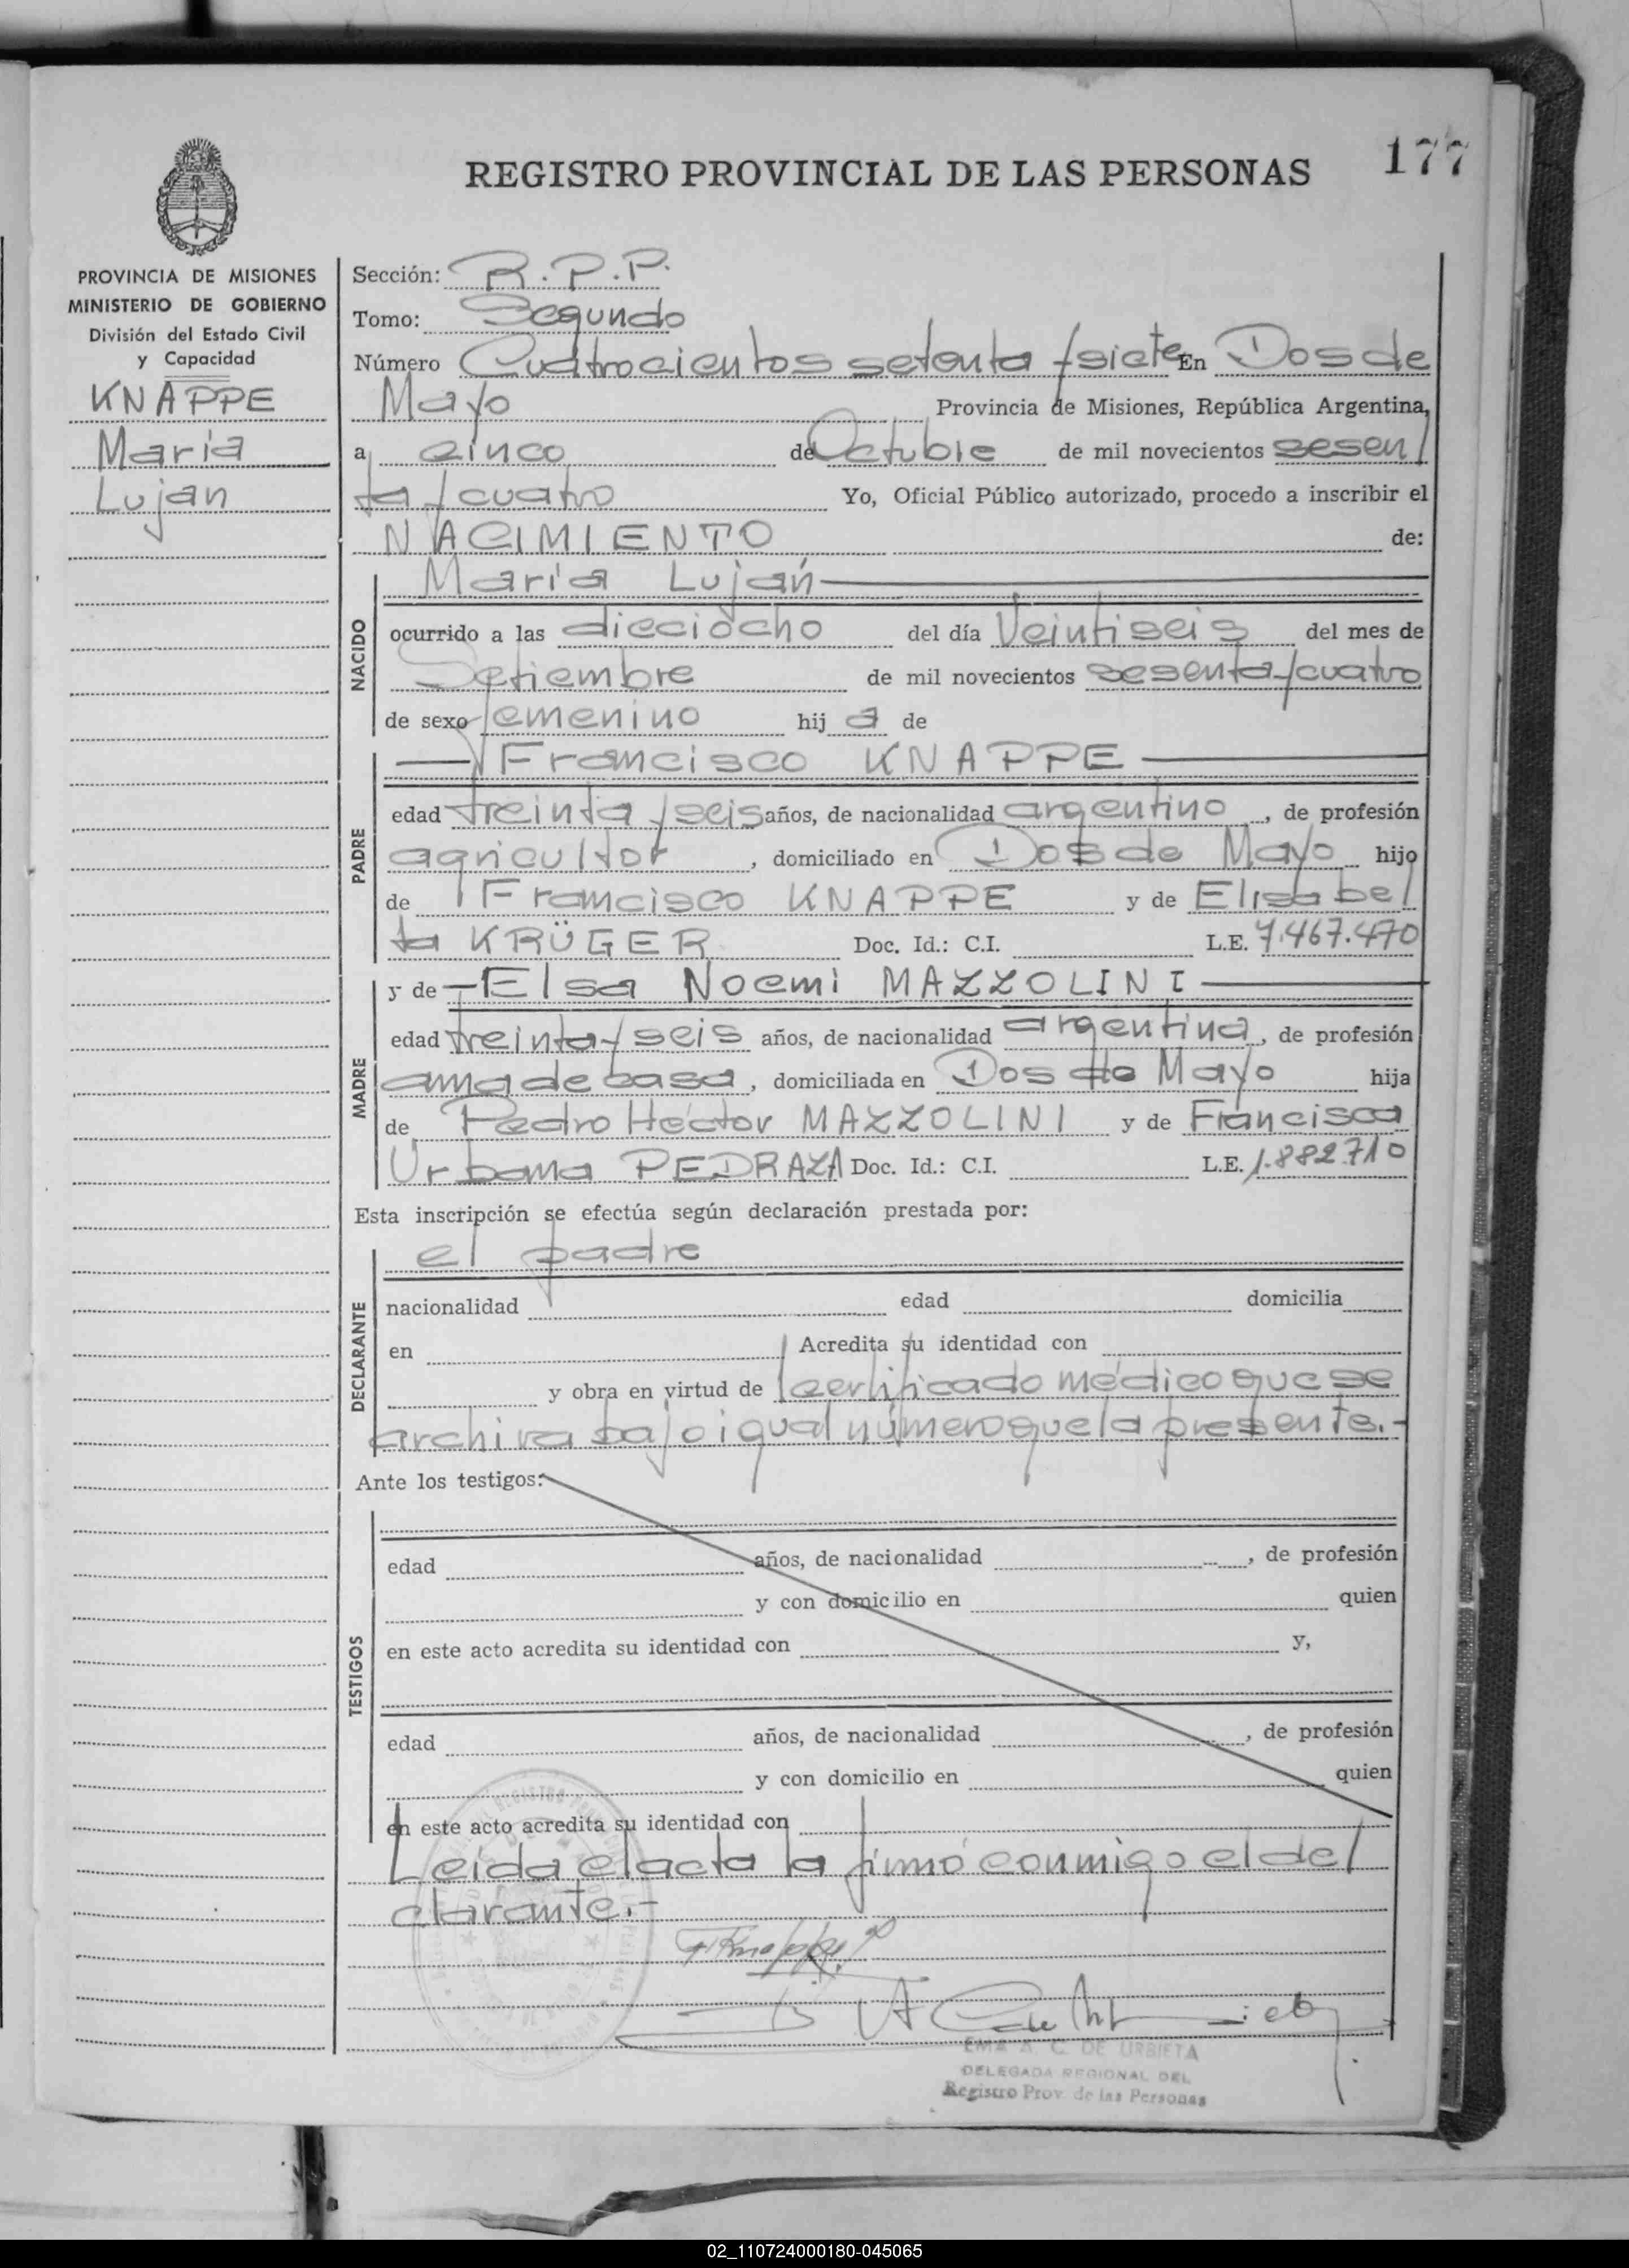 177
REGISTRO PROVINCIAL DE LAS PERSONAS
PROVINCIA DE MISIONES
MINISTERIO DE GOBIERNO
División del Estado Civil
y Capacidad
KNAPPE
María
Lujan
Sección: R.P.P.
Tomo: Segundo
Número Cuatrocientos setenta y siete En Dos de
Mayo Provincia de Misiones, República Argentina,
a cinco de Octubre de mil novecientos sesen/
ta y cuatro Yo, Oficial Público autorizado, procedo a inscribir el
NACIMIENTO de:
NACIDO
María Luján
ocurrido a las dieciocho del día Veintiseis del mes de
Setiembre de mil novecientos sesenta y cuatro
de sexo femenino hij a de
PADRE
Francisco KNAPPE
edad treinta y seis años, de nacionalidad argentino, de profesión
agricultor, domiciliado en Dos de Mayo hijo
de Francisco KNAPPE y de Elisabe/
ta KRÜGER Doc. Id.: C.I. L.E. 7.467.470
MADRE
y de Elsa Noemi MAZZOLINI
edad treinta y seis años, de nacionalidad argentina, de profesión
ama de casa, domiciliada en Dos de Mayo hija
de Pedro Héctor MAZZOLINI y de Francisca
Urbana PEDRAZA Doc. Id.: C.I. L.E. 1.882.710
Esta inscripción se efectúa según declaración prestada por:
DECLARANTE
el padre
nacionalidad edad domicilia
en Acredita su identidad con
y obra en virtud de certificado médico que se
archiva bajo igual número que la presente.-
Ante los testigos:
TESTIGOS
edad años, de nacionalidad , de profesión
y con domicilio en quien
en este acto acredita su identidad con y,
edad años, de nacionalidad , de profesión
y con domicilio en quien
en este acto acredita su identidad con
Leída el acta la firmó conmigo el de/
clarante.-
EMA A. C. DE URBIETA
DELEGADA REGIONAL DEL
Registro Prov. de las Personas
02_110724000180-045065